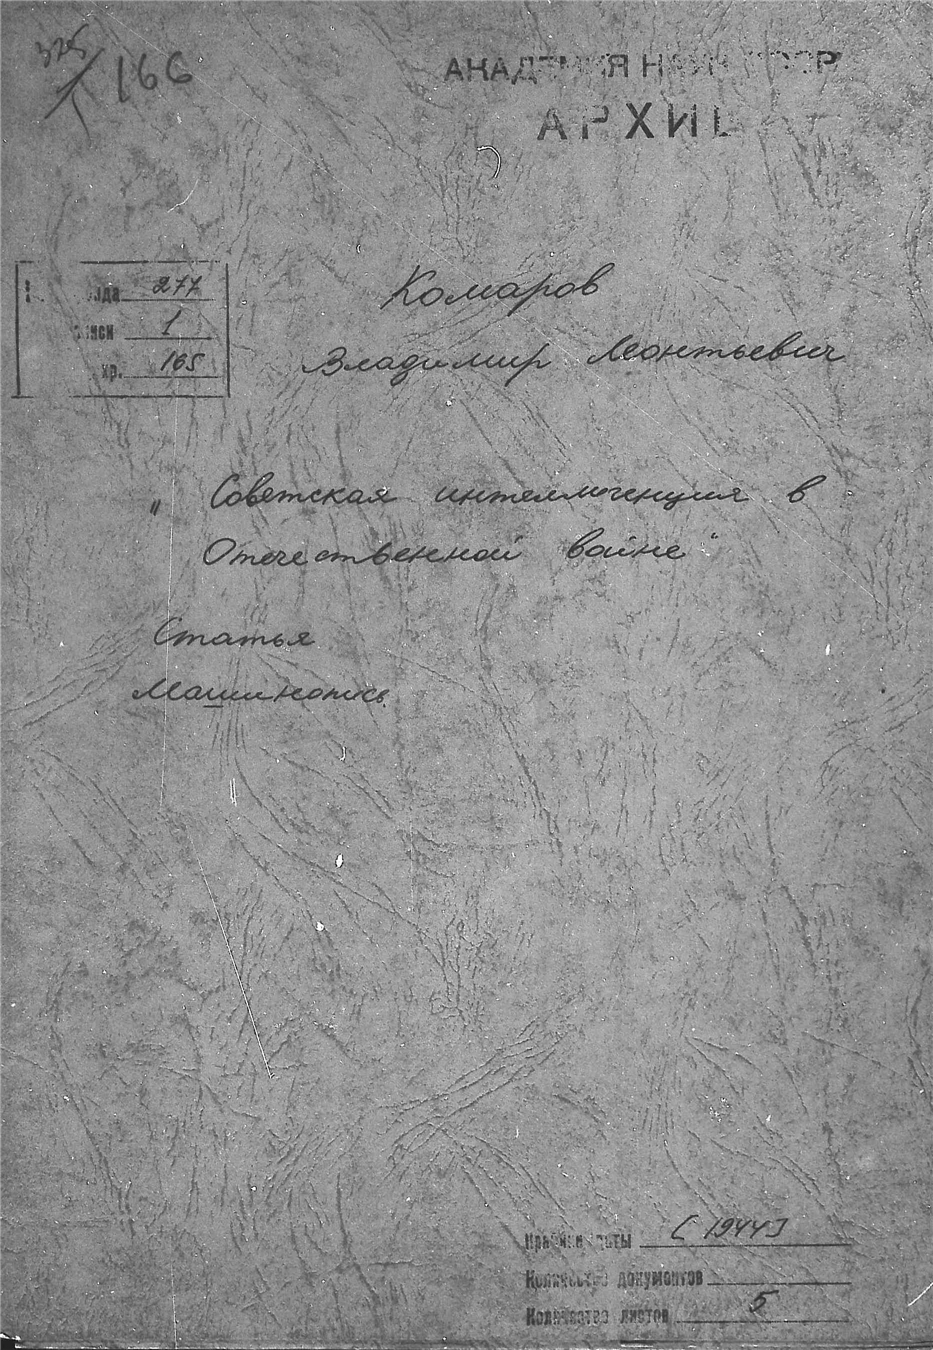 325/1
166
АКАДЕМИЯ НАУК СССР
АРХИВ
277
1
хр. 165
Комаров
Владимир Леонтьевич
„ Советская интеллигенция в
Отечественной войне"
Статья
Машинопись
Крайние даты [1944]
Количество документов
Количество листов 5